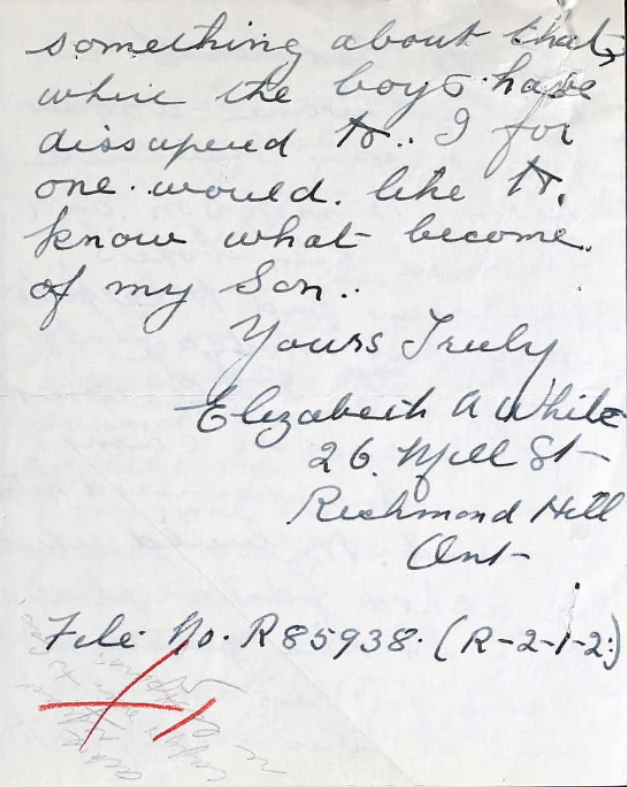 something about that,
where the boys have
dissapered to.. I for
one would like to
know what become.
of my Son..
Yours Truly
Elizabeth A White
26 Mill St
Richmond Hill
Ont
File No. R85938. (R-2-1-2:)